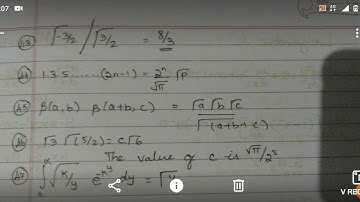 :07
V REC
43) Γ-3/2 / Γ3/2 = 8/3
44 1.3.5......(2n-1) = 2ⁿ/√π Γp
45) β(a,b) β(a+b,c) = Γa Γb Γc / Γ(a+b+c)
46 Γ3 Γ(5/2) = cΓ6
The value of c is √π/2⁵
47) ∫ √k/y e^-ky dy = Γ